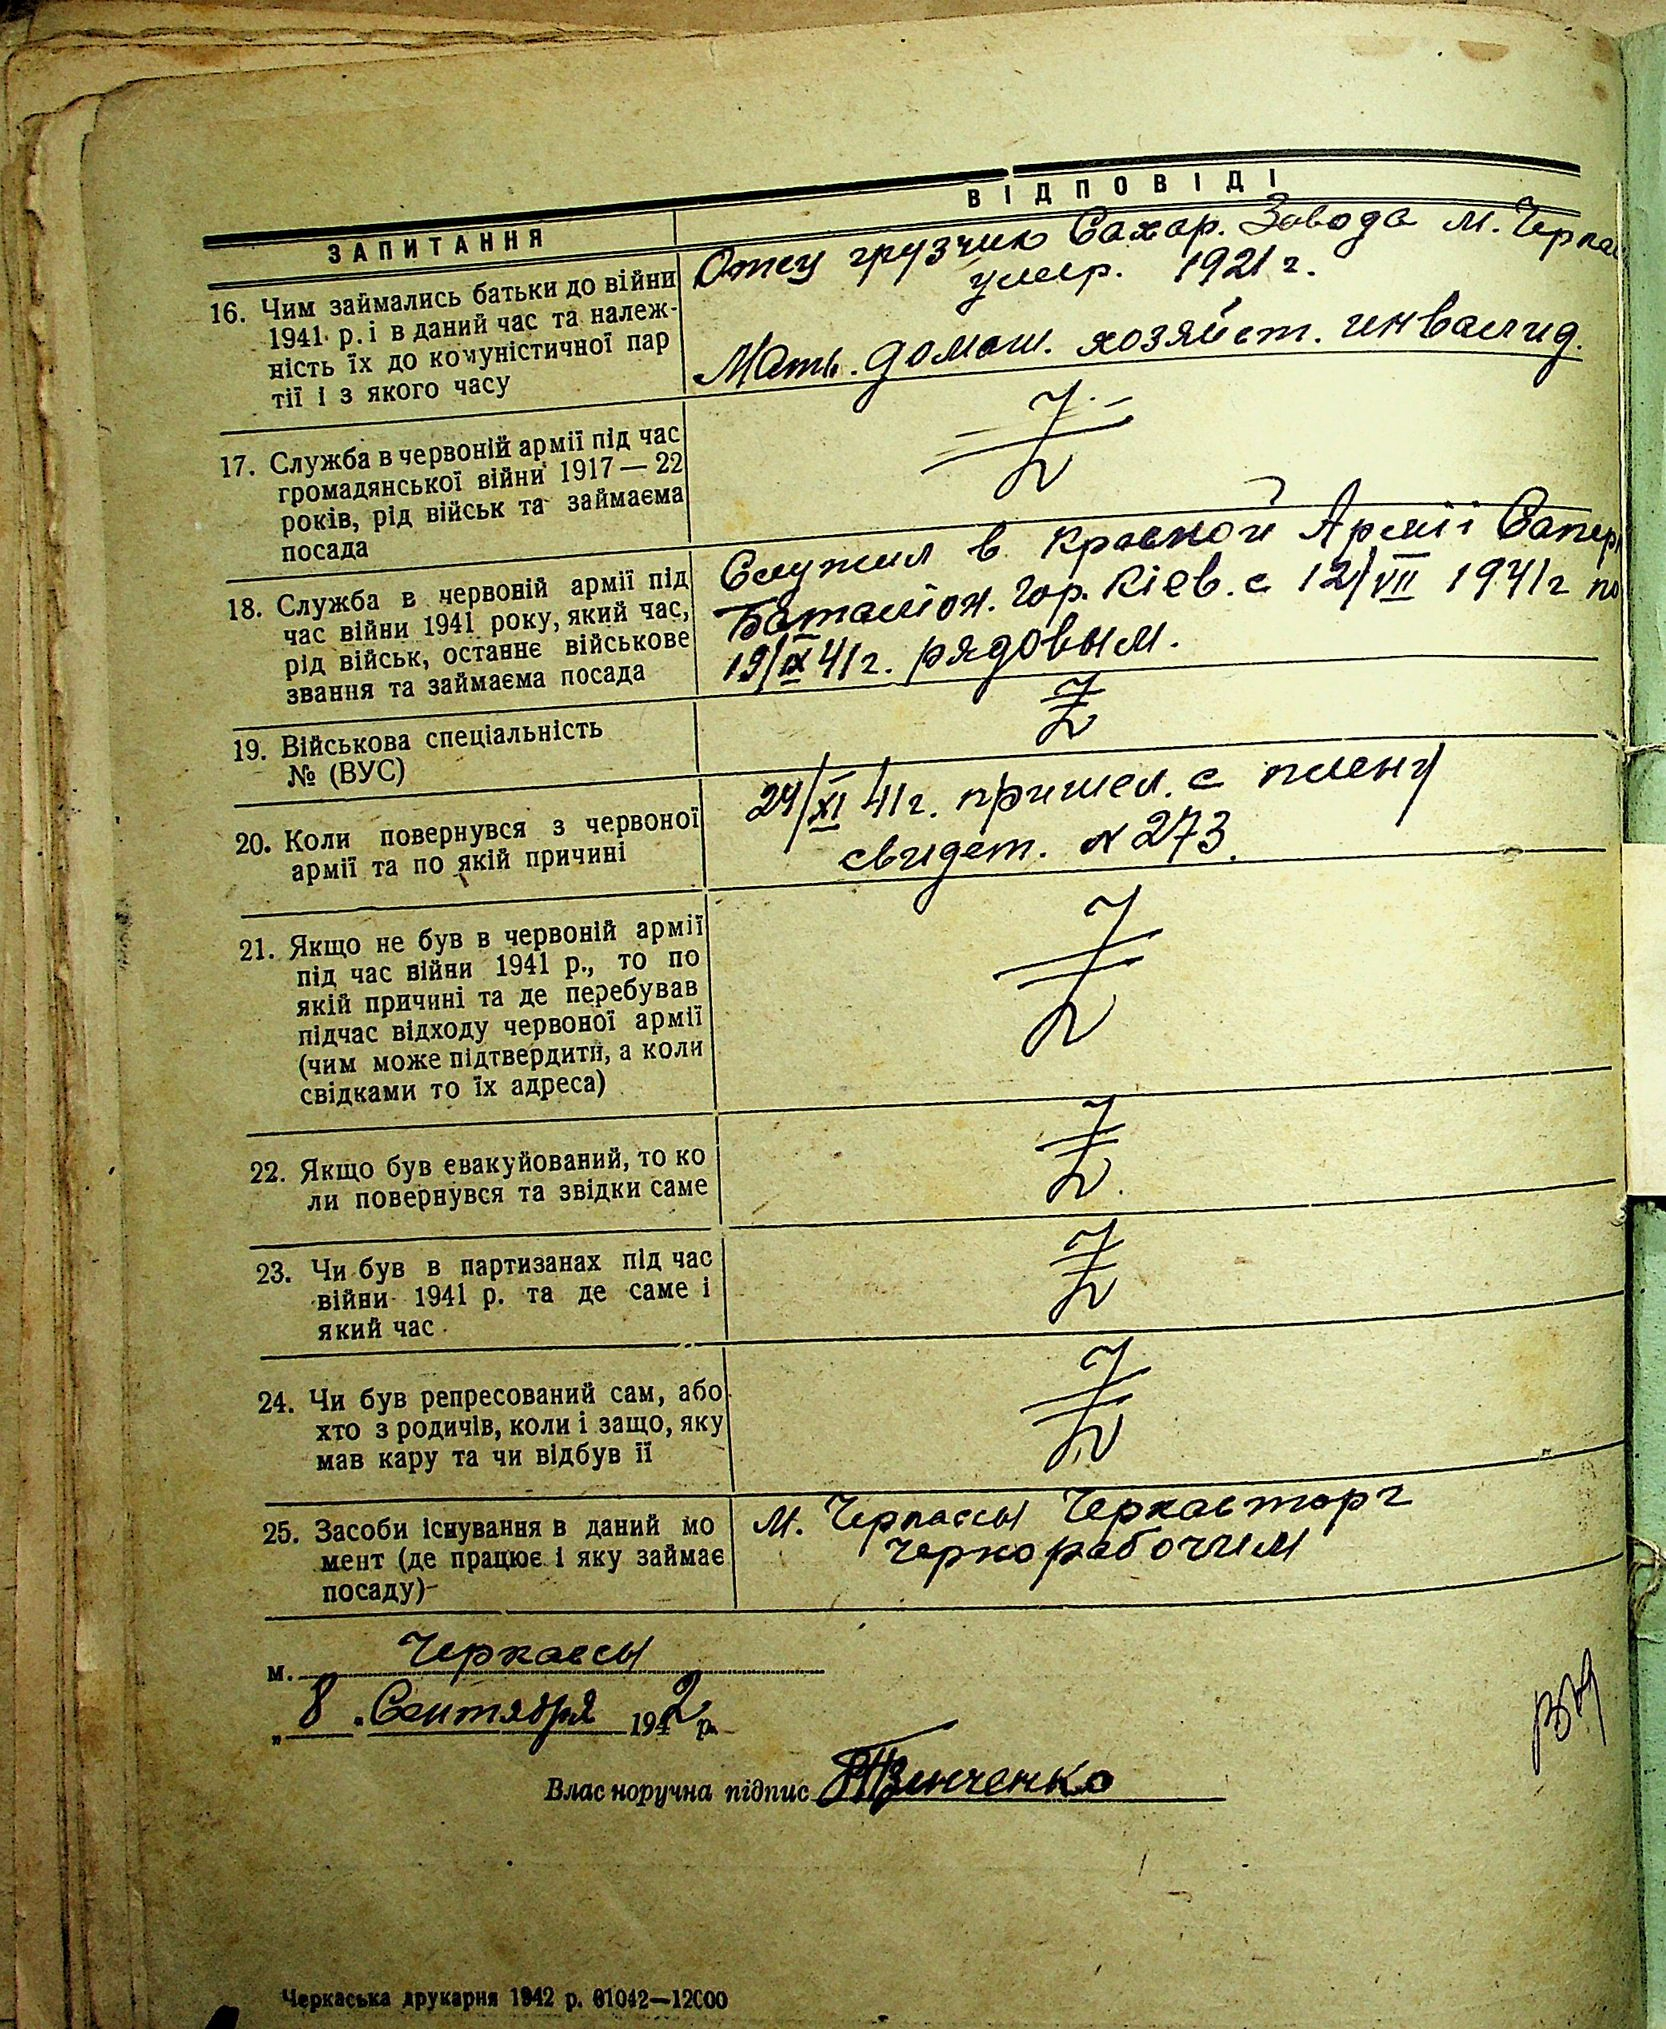 ЗАПИТАННЯ
ВІДПОВІДІ
16. Чим займались батьки до війни
1941 р. і в даний час та належ-
ність їх до комуністичної пар
тії і з якого часу
Отец грузчик Сахар. Завода м. Черкас
умер. 1921 г.
Мать. домаш. хозяйст. инвалид.
17. Служба в червоній армії під час
громадянської війни 1917—22
років, рід військ та займаєма
посада
18. Служба в червоній армії під
час війни 1941 року, який час,
рід військ, останнє військове
звання та займаєма посада
Служил в Красной Армii Сапер
Баталiон. гор. Кiев. с 12/VII 1941 г по
19/IX 41 г. рядовым.
19. Військова спеціальність
№ (ВУС)
20. Коли повернувся з червоної
армії та по якій причині
24/XI 41 г. пришел. с плену
свидет. № 273.
21. Якщо не був в червоній армії
під час війни 1941 р., то по
якій причині та де перебував
підчас відходу червоної армії
(чим може підтвердити, а коли
свідками то їх адреса)
22. Якщо був евакуйований, то ко
ли повернувся та звідки саме
23. Чи був в партизанах під час
війни 1941 р. та де саме і
який час
24. Чи був репресований сам, або
хто з родичів, коли і защо, яку
мав кару та чи відбув її
25. Засоби існування в даний мо
мент (де працює і яку займає
посаду)-
м. Черкассы Черкасторг
чернорабочим
м. Черкассы
„ 8 „ Сентября 1942 р.
Влас норучна підпис Зинченко
Черкаська друкарня 1942 р. 01042—12000